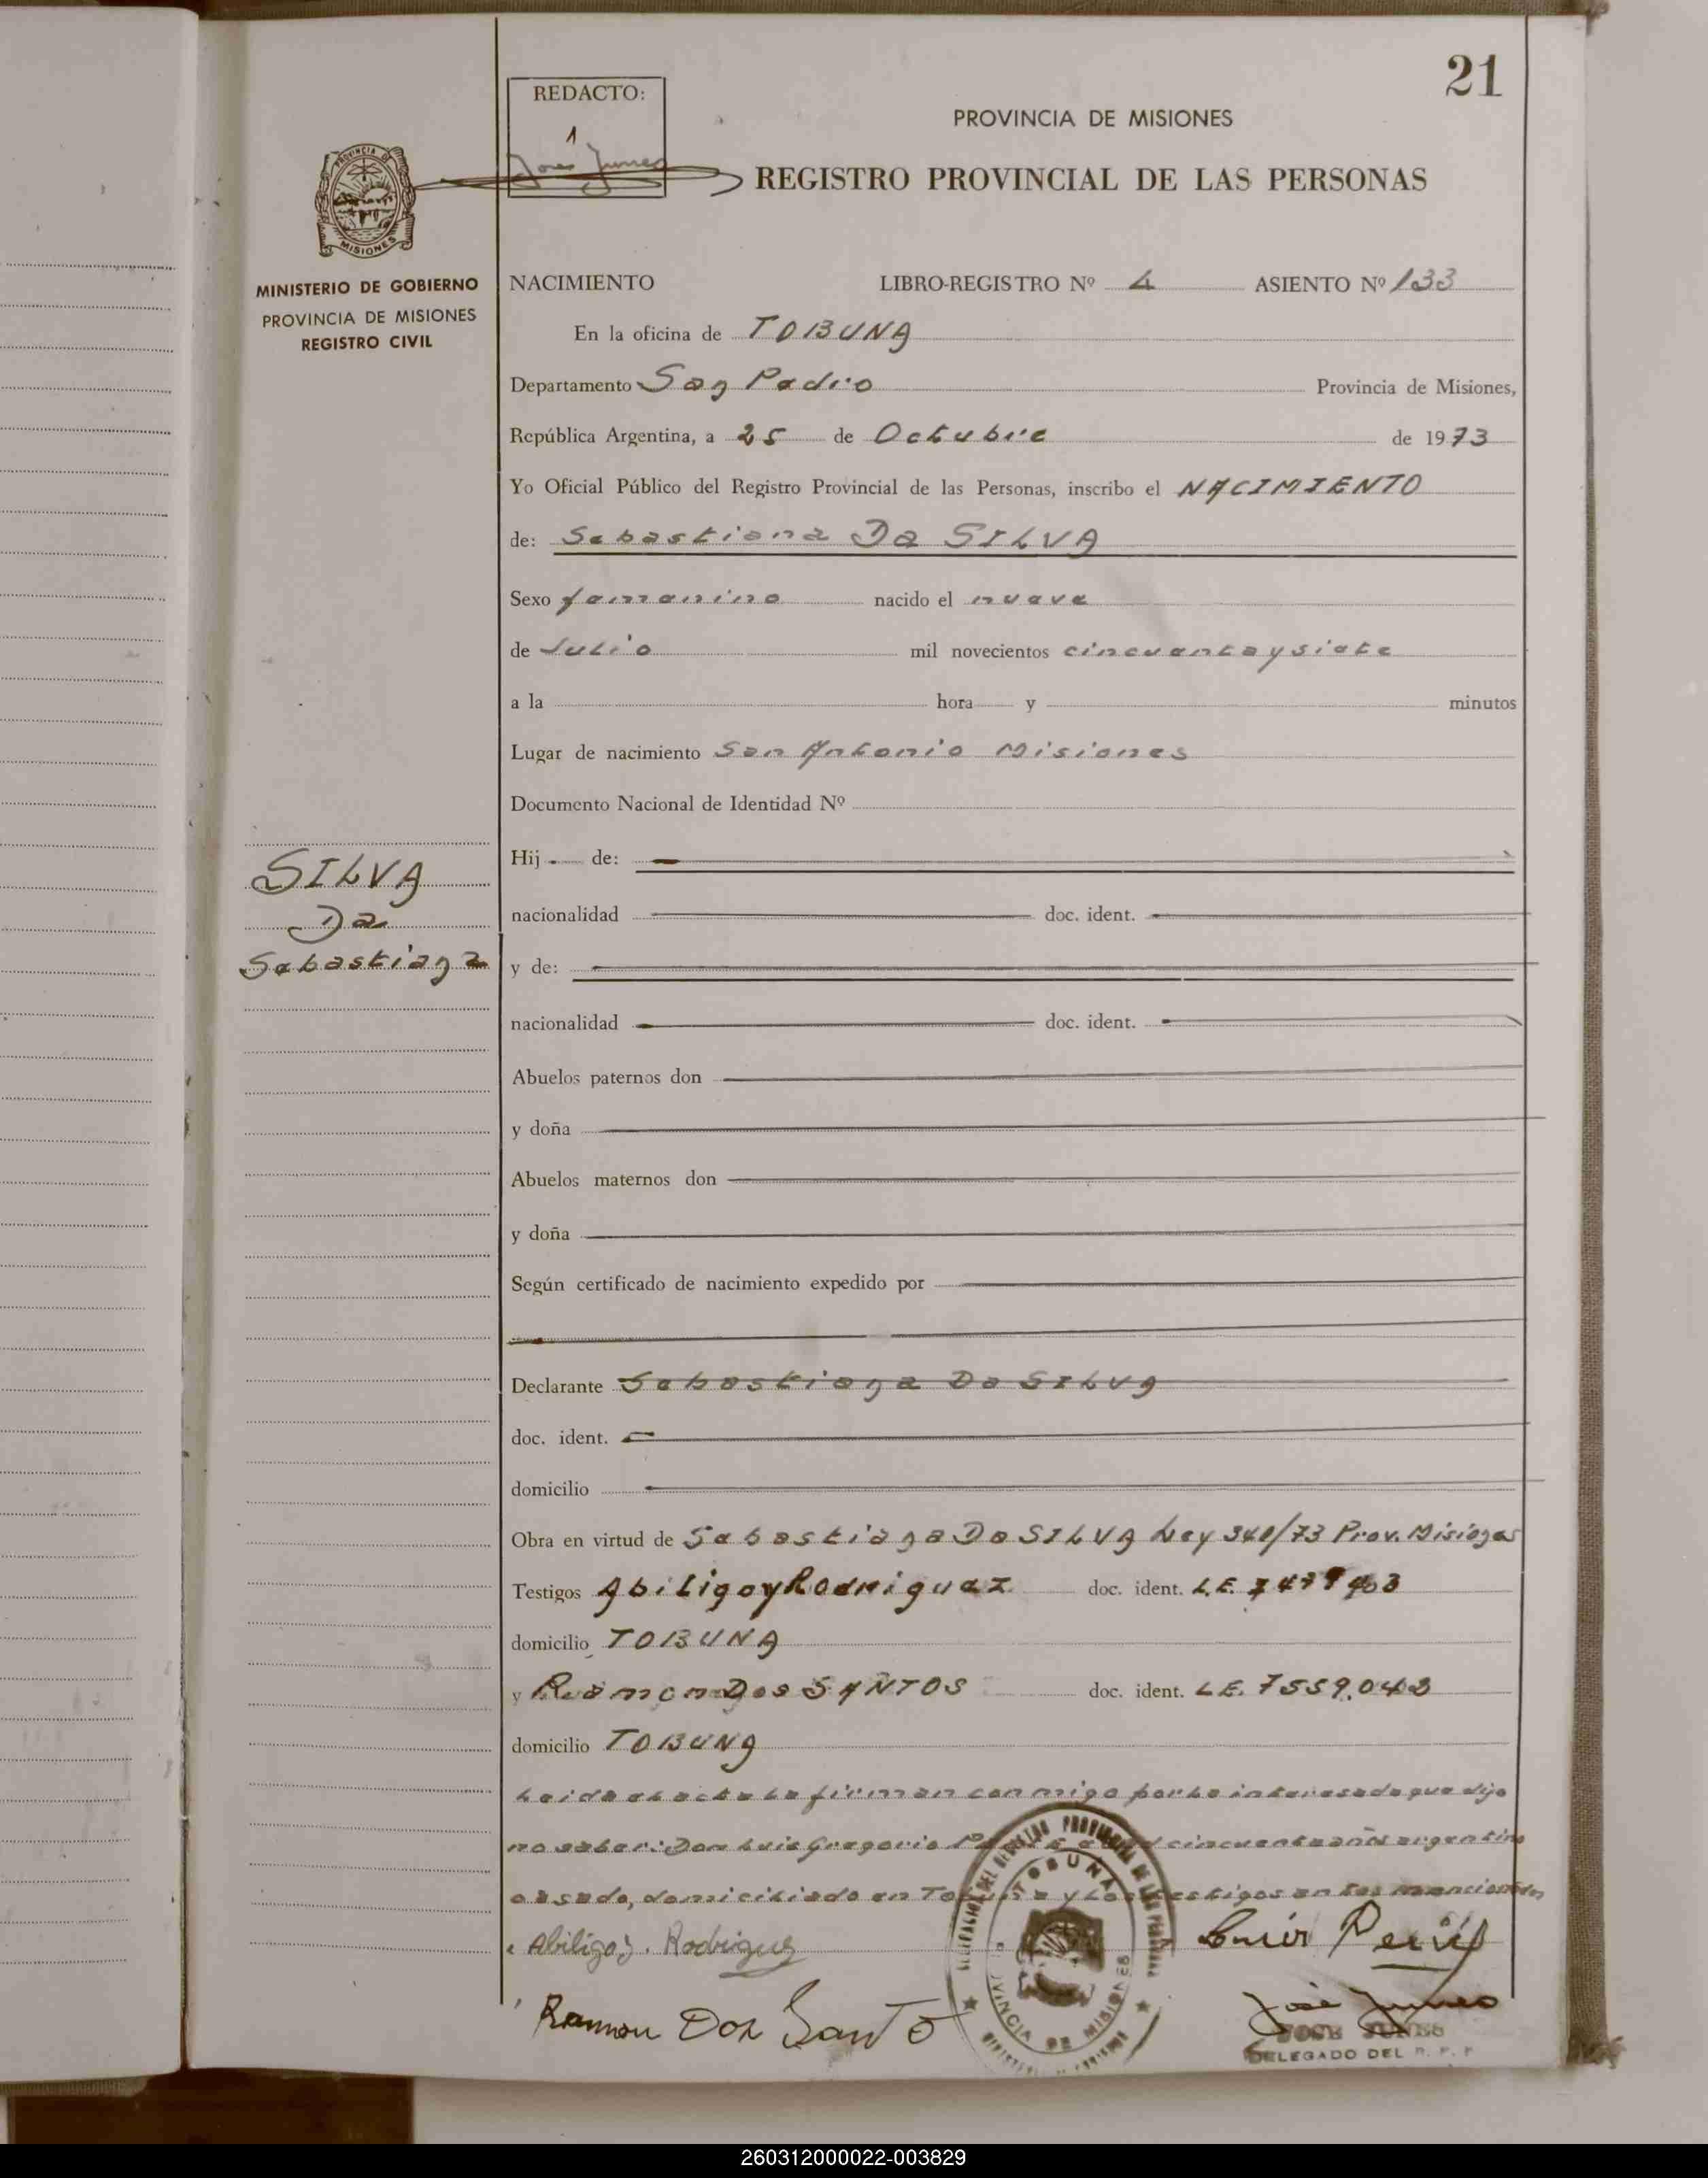 21
REDACTO:
1
José Junes
PROVINCIA DE MISIONES
REGISTRO PROVINCIAL DE LAS PERSONAS
PROVINCIA DE
MISIONES
MINISTERIO DE GOBIERNO
PROVINCIA DE MISIONES
REGISTRO CIVIL
NACIMIENTO LIBRO-REGISTRO Nº 4 ASIENTO Nº 133
En la oficina de TOBUNA
Departamento San Pedro Provincia de Misiones,
República Argentina, a 25 de Octubre de 1973
Yo Oficial Público del Registro Provincial de las Personas, inscribo el NACIMIENTO
de: Sebastiana Da SILVA
Sexo femenino nacido el nueve
de Julio mil novecientos cincuenta y siete
a la hora y minutos
Lugar de nacimiento San Antonio Misiones
Documento Nacional de Identidad Nº
Hij de:
nacionalidad doc. ident.
SILVA
Da
Sebastiana
y de:
nacionalidad doc. ident.
Abuelos paternos don
y doña
Abuelos maternos don
y doña
Según certificado de nacimiento expedido por
Declarante Sebastiana Da SILVA
doc. ident.
domicilio
Obra en virtud de Sebastiana Da SILVA Ley 340/73 Prov. Misiones
Testigos Abiligoy Rodriguez doc. ident. L.E.
domicilio TOBUNA
y Ramon Dos SANTOS doc. ident. L.E. 7559.043
domicilio TOBUNA
Leida el acta la firman conmigo por la interesada que dijo
no saber: Don Luis Gregorio cincuenta años argentino
casado, domiciliado en Tobuna y los testigos antes mencionados
Abiligoy. Rodriguez
Luis
Ramon Dos Santo
TOBUNA
José Junes
JOSE JUNES
DELEGADO DEL R. P. P
260312000022-003829